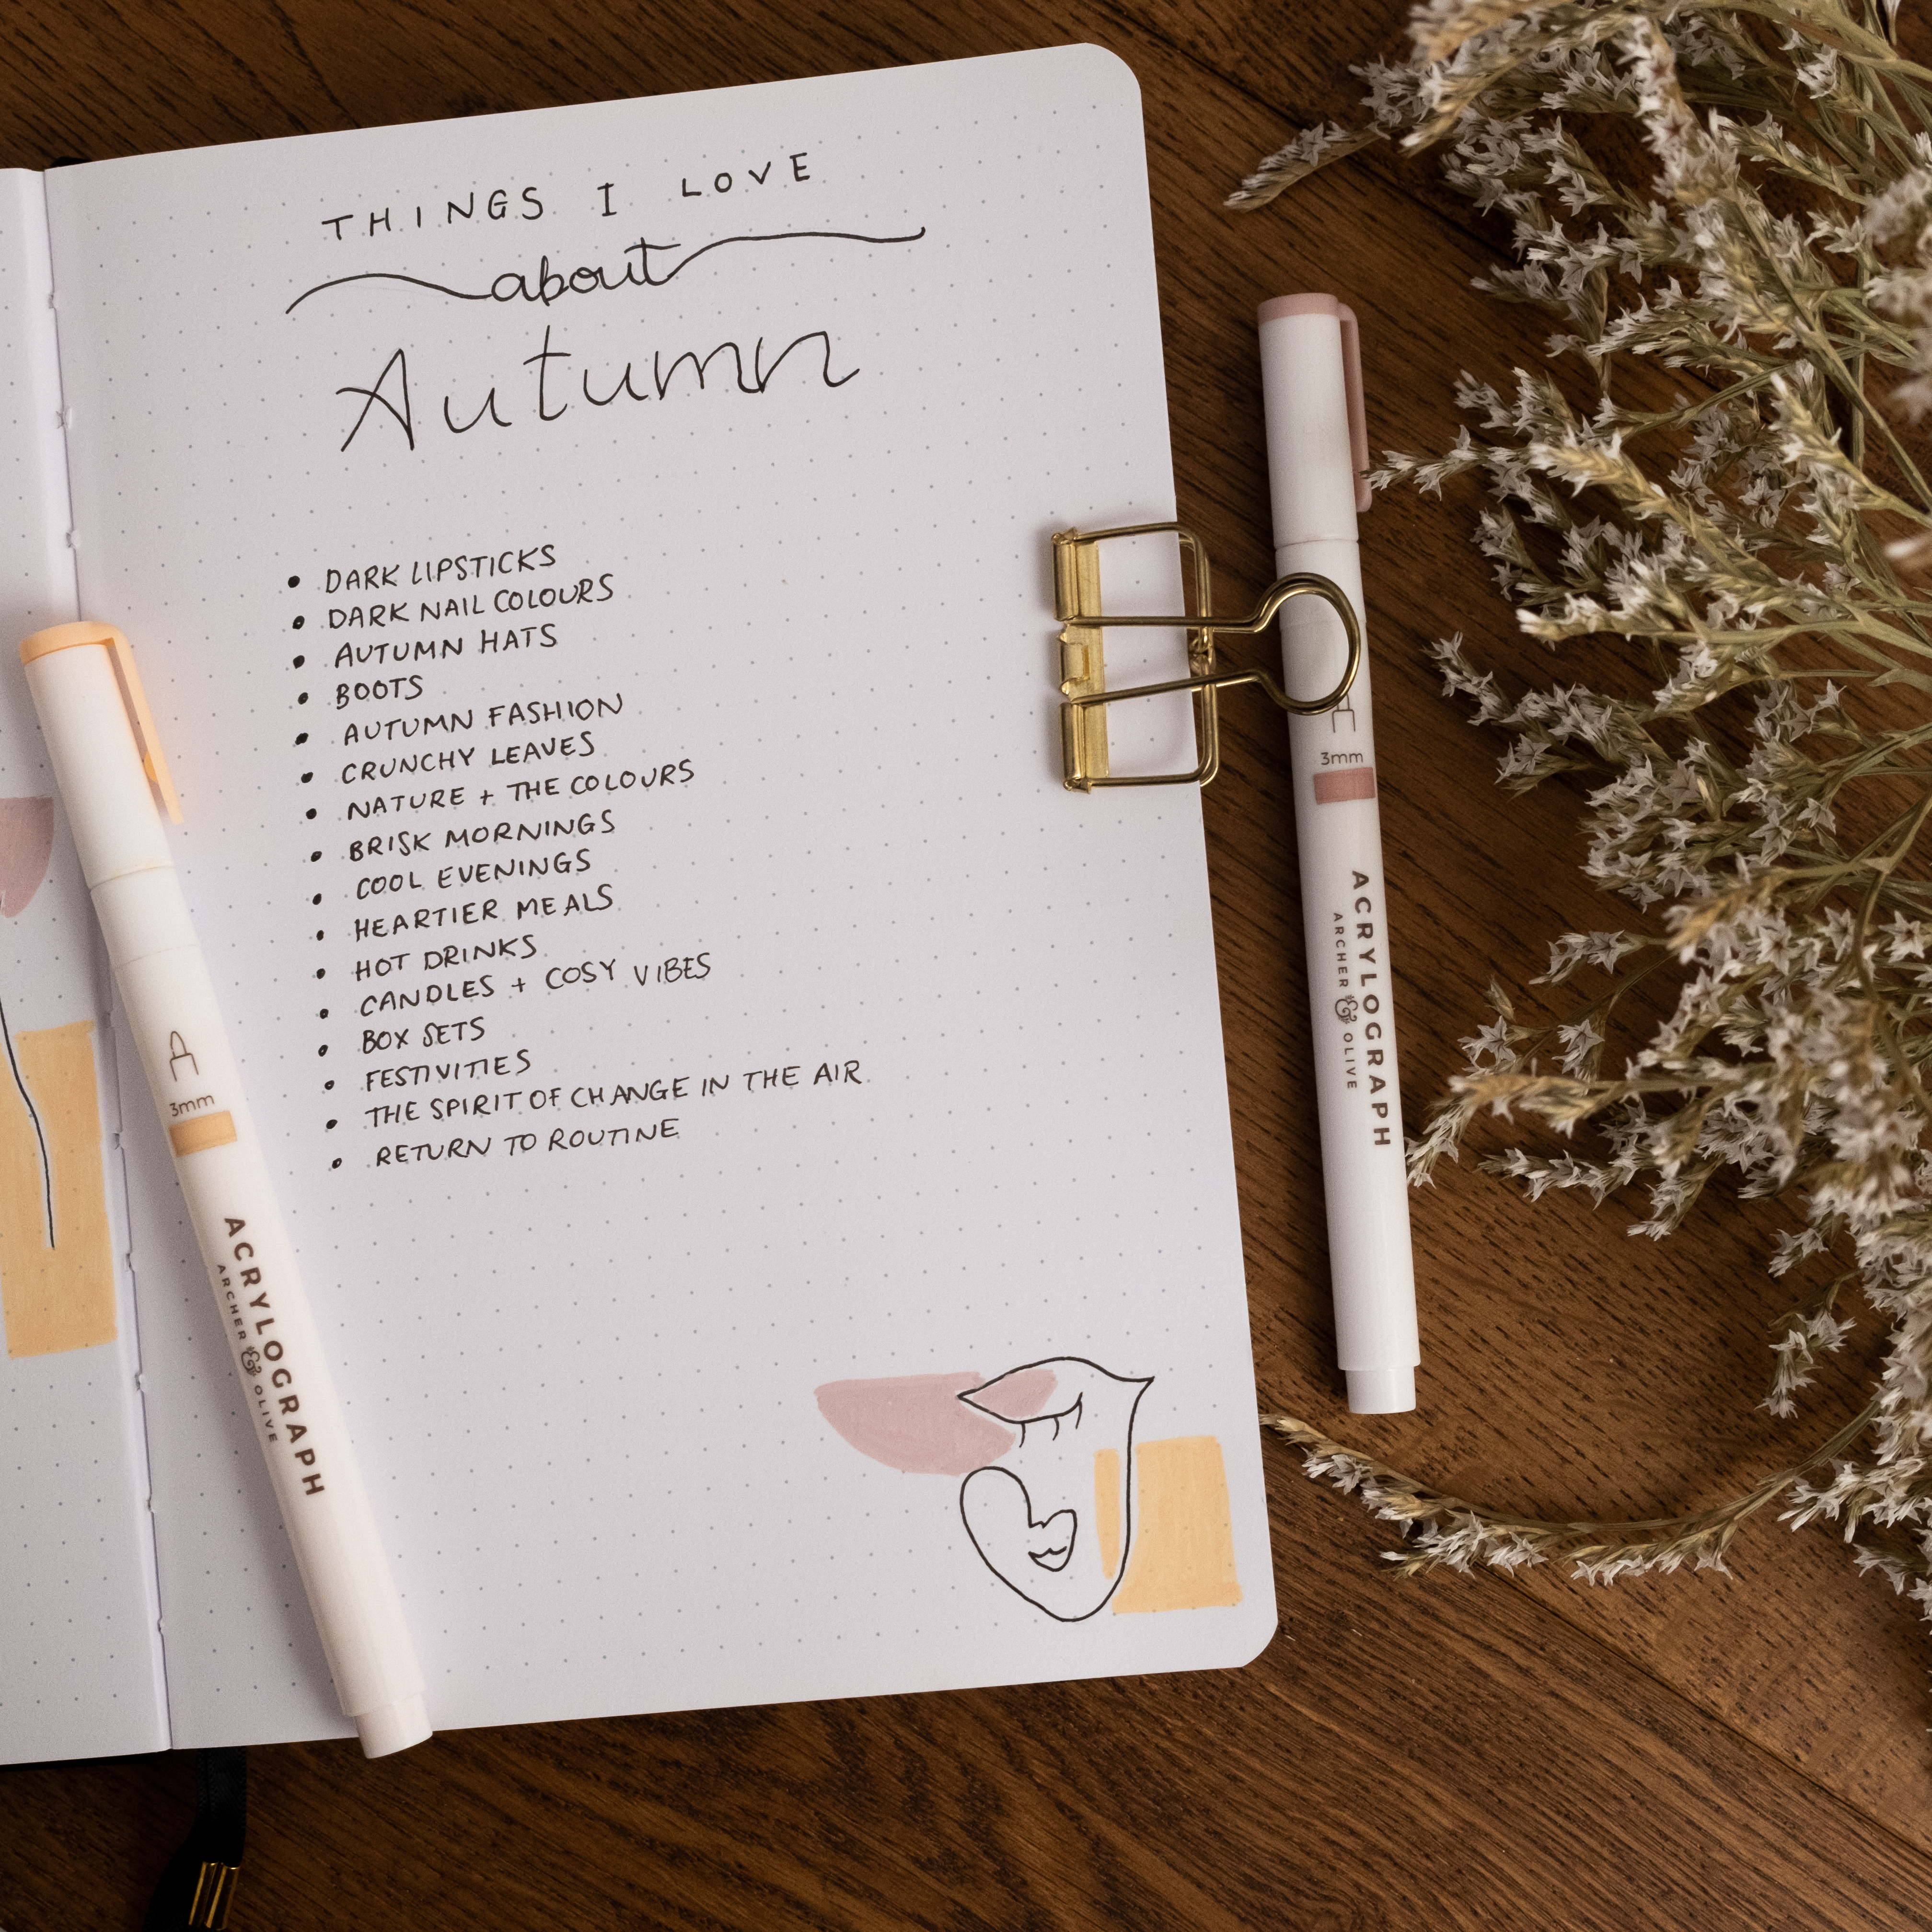 THINGS I LOVE
about
Autumn
• DARK LIPSTICKS
• DARK NAIL COLOURS
• AUTUMN HATS
• BOOTS
• AUTUMN FASHION
• CRUNCHY LEAVES
• NATURE + THE COLOURS
• BRISK MORNINGS
• COOL EVENINGS
• HEARTIER MEALS
• HOT DRINKS
• CANDLES + COSY VIBES
• BOX SETS
• FESTIVITIES
• THE SPIRIT OF CHANGE IN THE AIR
• RETURN TO ROUTINE
3mm
ACRYLOGRAPH
ARCHER & OLIVE
3mm
ACRYLOGRAPH
ARCHER & OLIVE